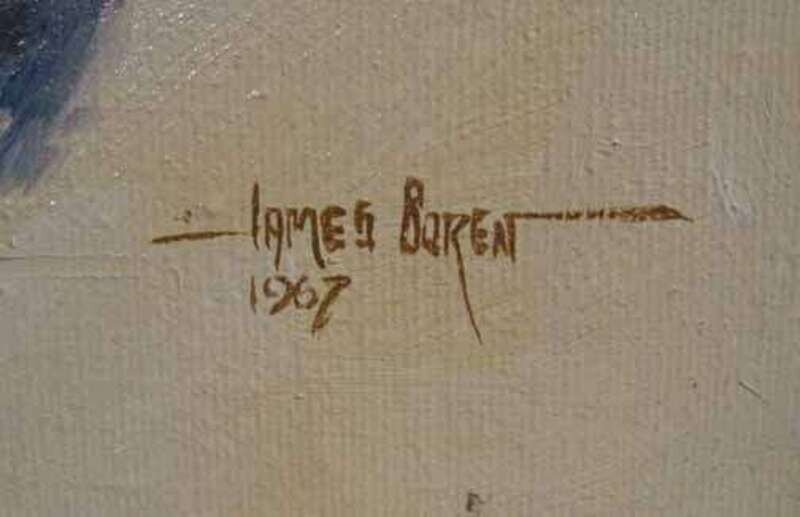 JAMES BOREN
1967